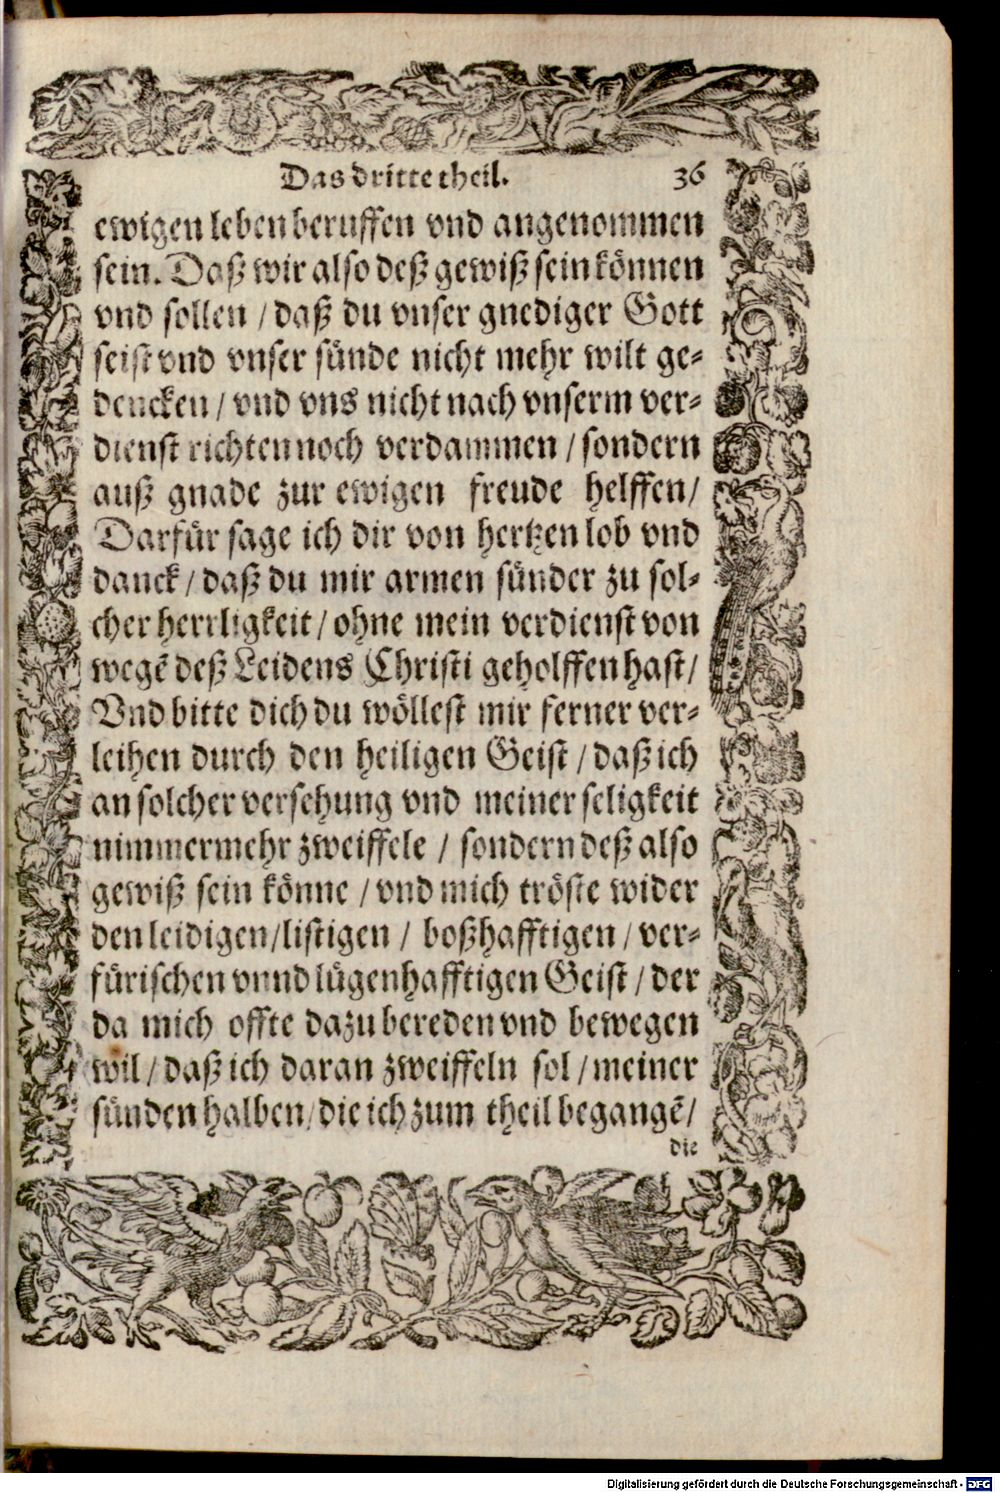 Das dritte theil. 36
ewigen leben beruffen vnd angenommen
sein. Daß wir also deß gewiß sein können
vnd sollen / daß du vnser gnediger Gott
seist vnd vnser sünde nicht mehr wilt ge-
dencken / vnd vns nicht nach vnserm ver-
dienst richten noch verdammen / sondern
auß gnade zur ewigen freude helffen/
Darfür sage ich dir von hertzen lob vnd
danck / daß du mir armen sünder zu sol-
cher herrligkeit / ohne mein verdienst von
wegẽ deß Leidens Christi geholffen hast/
Vnd bitte dich du wöllest mir ferner ver-
leihen durch den heiligen Geist / daß ich
an solcher versehung vnd meiner seligkeit
nimmermehr zweiffele / sondern deß also
gewiß sein könne / vnd mich tröste wider
den leidigen/listigen / boßhafftigen / ver-
fürischen vnnd lügenhafftigen Geist / der
da mich offte dazu bereden vnd bewegen
wil / daß ich daran zweiffeln sol / meiner
sünden halben/die ich zum theil begangẽ/
die
Digitalisierung gefördert durch die Deutsche Forschungsgemeinschaft - DFG